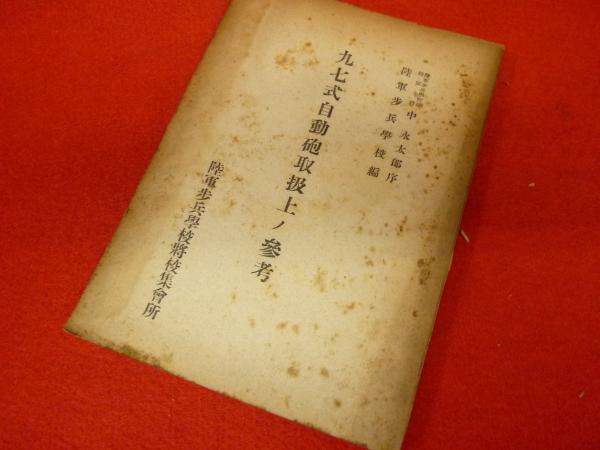 中永太郎序
陸軍歩兵學校編
九七式自動砲取扱上ノ參考
陸軍歩兵學校將校集會所